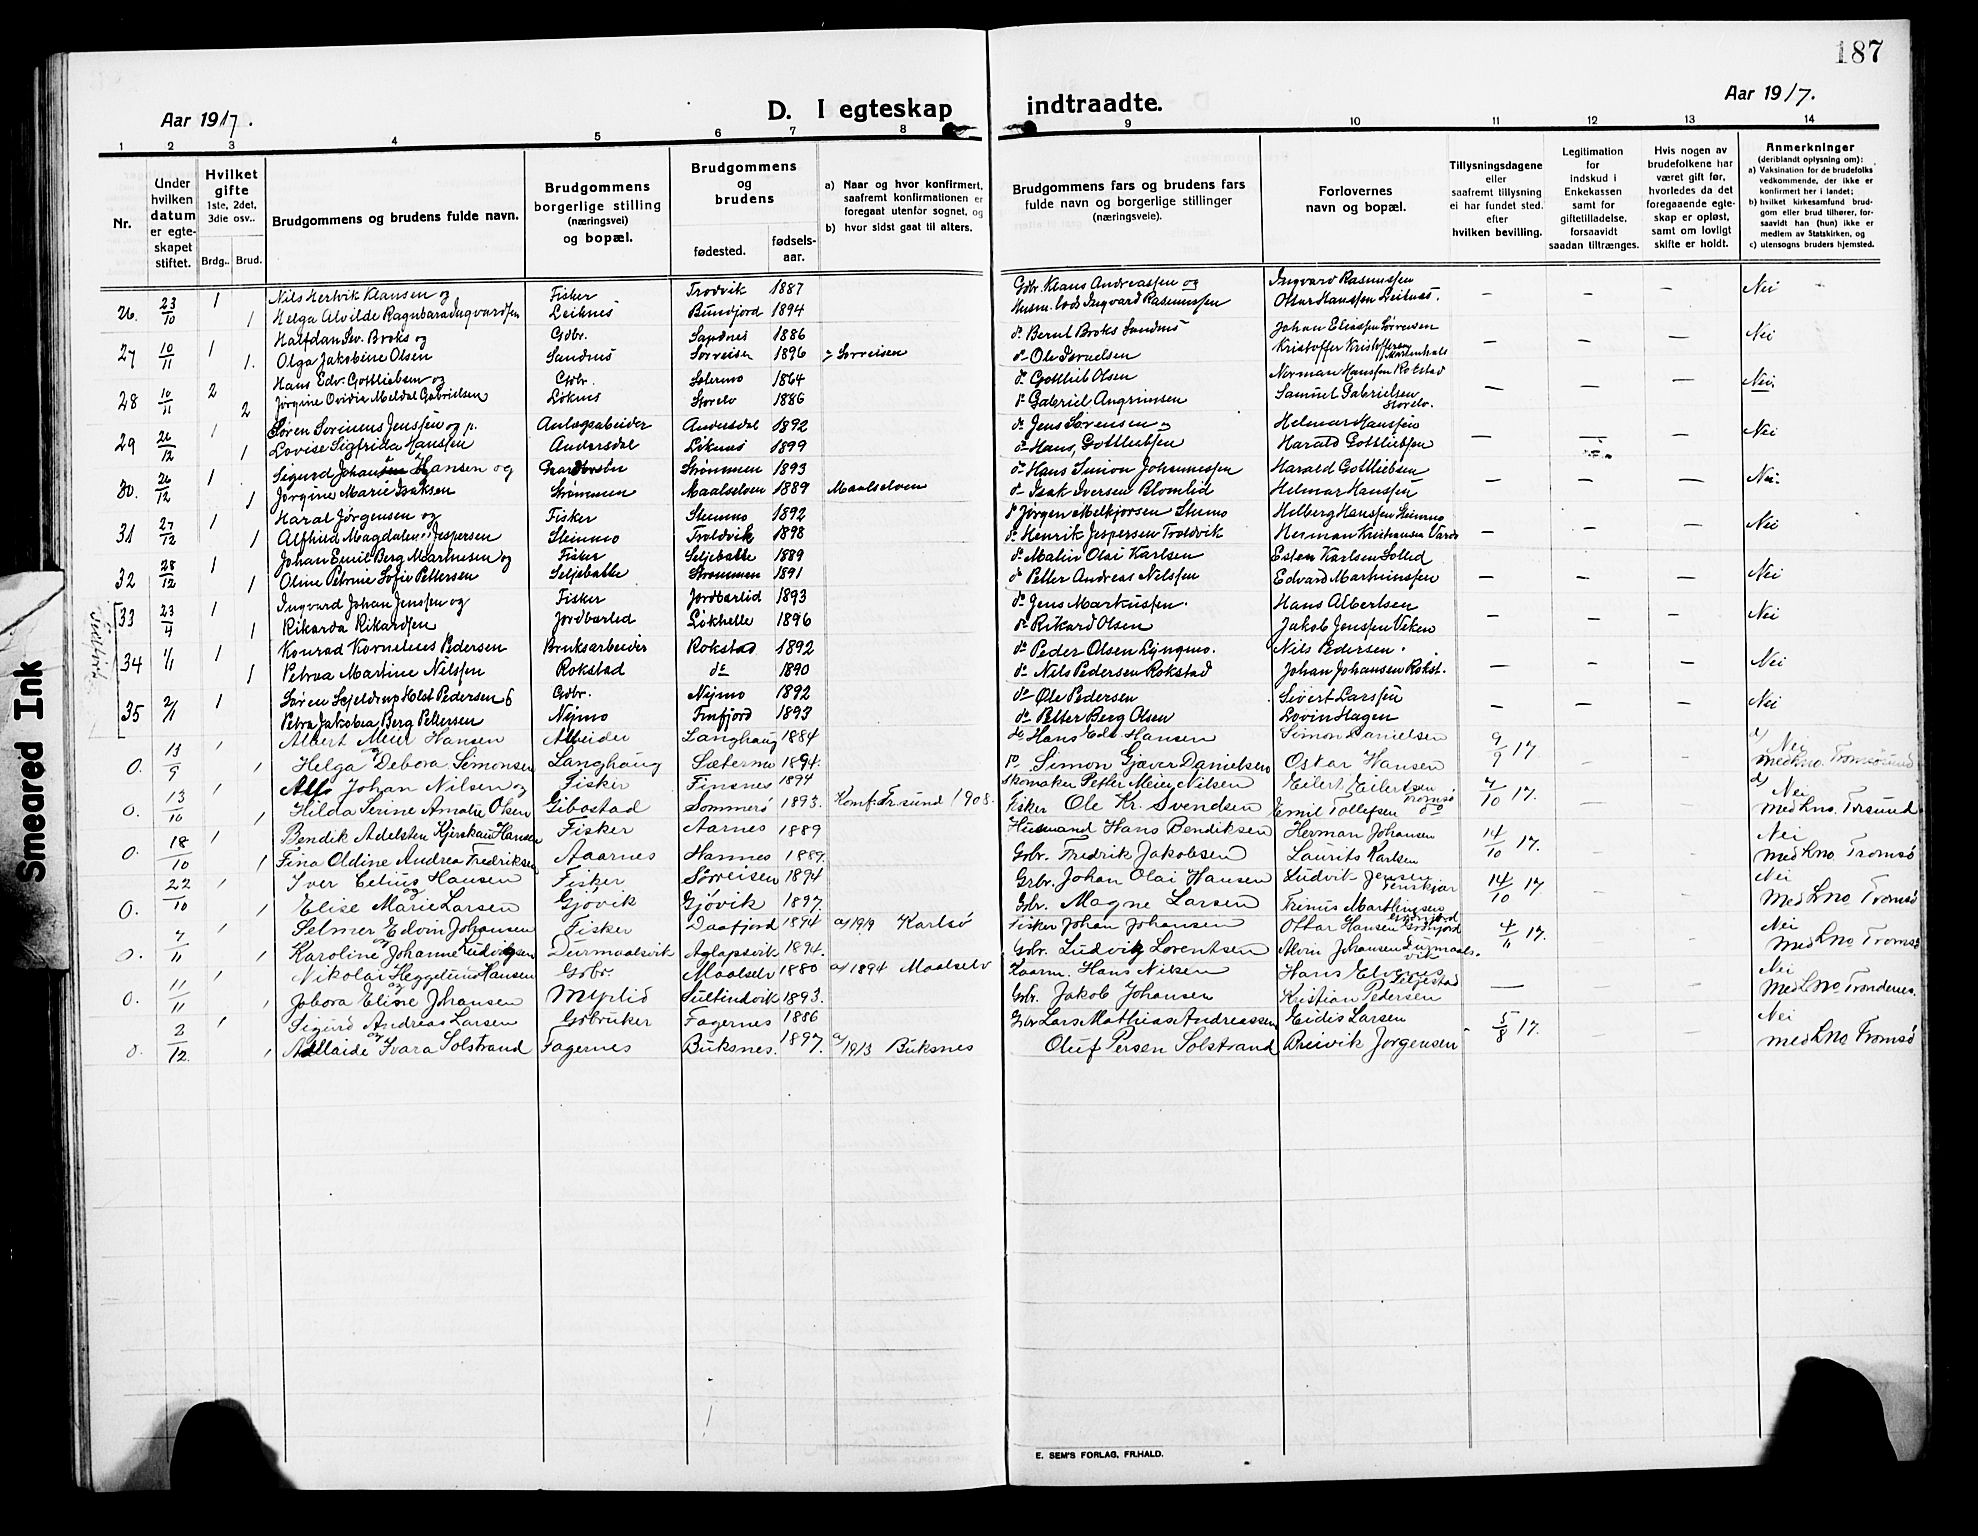 187
Aar 1917.
D. I egteskap indtraadte.
Aar 1917.
1 2 3 4 5 6 7 8 9 10 11 12 13 14
Nr.
Under hvilken datum er egteskapet stiftet.
Hvilket gifte
1ste, 2det, 3die osv..
Brdg.. Brud.
Brudgommens og brudens fulde navn.
Brudgommens borgerlige stilling (næringsvei) og bopæl.
Brudgommens og brudens
fødested.
fødselsaar.
a) Naar og hvor konfirmert, saafremt konfirmationen er foregaat utenfor sognet, og
b) hvor sidst gaat til alters.
Brudgommens fars og brudens fars fulde navn og borgerlige stillinger (næringsveie).
Forlovernes navn og bopæl.
Tillysningsdagene eller saafremt tillysning ei har fundet sted. efter hvilken bevilling.
Legitimation for indskud i Enkekassen samt for giftetilladelse, forsaavidt saadan tiltrænges.
Hvis nogen av brudefolkene har været gift før, hvorledes da det foregaaende egteskap er opløst, samt om lovligt skifte er holdt.
Anmerkninger
(deriblandt oplysning om):
a) Vaksination for de brudefolks vedkommende, der ikke er konfirmert her i landet;
b) hvilket kirkesamfund brudgom eller brud tilhører, forsaavidt han (hun) ikke er medlem av Statskirken, og
c) utensogns bruders hjemsted.
26. 23/10 1 Nils Hertvik Klausen og Fisker Trodvik 1887 Gdbr. Klaus Andreassen og Ingvard Rasmussen — — — Nei
1 Helga Alvilde Ragnbara Ingvardsen Leiknes Bundjord 1894 Ingvard Rasmussen Ottar Hanssen Leiknes.
27 10/11 1 Halfdan Sev. Broks og Gdbr. Sandnes 1886 do Bernt Broks Sandnes Johan Eliassen Sørrensen — — — Nei
1. Olga Jakobine Olsen Sandnes Sørreisen 1896 Sørreisen do Ole Israelsen Kristoffer Kristoffersen
28 10/11 2 Hans Edv. Gottliebsen og Gdbr. Selermo 1864 do Gottlieb Olsen Norman Hanssen Rokstad — — — Nei.
2 Jørgine Ovidie Meldal Gabrielsen Løknes Storelv 1886 do Gabriel Angrimsen Samuel Gabrielsen Storelv.
29 26/12 1 Søren Sørinius Jenssen og Anlægsabeider Andersdal 1892 do Jens Sørensen og Helmer Hanssen — — — Nei
1 Lovise Sigfrida Hanssen Andersdal Løknes 1899 do Hans Gottliebsen Harald Gottliebsen
30. 26/12 1. Sigurd Johan Hansen og Strømmen 1893 do Hans Simon Johannessen Harald Gottliebsen — — — Nei.
1 Jørgine Marie Isaksen Strømmen Maalselven 1889 Maalselven do Isak Iversen Blomlid Helmer Hanssen
31 27/12 1 Haral Jørgensen og Fisker Stenmo 1892 do Jørgen Melkjorsen Stenmo Helberg Hanssen — — — Nei
1 Alfhild Magdalene Jespersen Stenmo Troldvik 1898 do Henrik Jespersen Troldvik Herman Kristiansen
32 28/12 1 Johan Emil Berg Martinsen og Fisker Seljebakke 1889 do Martin Olai Karlsen Esten Karlsen Solled — — — Nei
1 Oline Petrine Sofie Pettersen Seljebakke Strømmen 1891 do Petter Andreas Nilssen Edvard Martinussen
33 23/4 1 Ingvard Johan Jenssen og Fisker Jordbærlid 1893 do Jens Markussen. Hans Albertsen — — — Nei
1 Rikarda Rikardsen Jordbærled Løkhelle 1896 do Rikard Olsen Jakob Jenssen Veken
34 1/11 1 Konrad Kornelius Pedersen Bruksarbeider Rokstad 1892 do Peder Olsen Lyngmo. Nils Pedersen. — — — Nei
1 Petrea Martine Nilssen Rokstad do 1890 do Nils Pedersen Rokstad Johan Johansen Rokst.
35 2/11 1 Søren Sejeldrup Holst Pedersen Gdbr. Nejmo 1892 do Ole Pedersen Sivert Larssen — — — Nei
Petra Jakobea Berg Pettersen Nejmo Finfjord 1893 do Petter Berg Olsen Lovin Hagen
0. 13/9 1 Albert Meier Hansen Abeider Langhaug 1884 do Hans Edv. Hansen Simon Danielsen 9/9 17. – – Nei
og
1 Helga Debora Simonsen Langhaug Sæterno 1894. do Simon Gjæver Danielsen Oskar Hansen medkno. Tromsøsund
0. 13/10 1 Alfr Johan Nilsen og Fisker Finsnes 1894 Skomaker Petter Meier Nilsen Eilert Eilertsen Tromsø 7/10 17. – – Nei
1 Hilda Serine Amalie Olsen Gibostad Sommerø 1893. Konf. Tr.sund 1908. Fisker Ole Kr. Svendsen Emil Tollefsen do medkno. Tr.sund
0. 18/10 1 Bendik Adelsten Hansen Fisker Aarnes 1889 Husmand Hans Bendiksen Herman Johansen 14/10 17. – – Nei
1 Fina Oldine Andrea Fredriksen Aaarnes Hannes 1889. Grbr. Fredrik Jakobsen Laurits Karlsen medkno. Tromsø
0. 22/10 1 Iver Celius Hansen Fisker Sørreisen 1894 Grbr. Johan Olai Hansen Ludvik Jensen 14/10 17. – – Nei
og
1 Elise Marie Larsen Gjøvik Gjøvik 1897. Gbr. Magne Larsen Trinus medkno Tromsø
0. 7/11 1 Selmer Edvin Johansen Fisker Daafjord 1894 a/1919 Karlsø Fisker Johan Johansen Ottar Hansen 4/11 17. – – Nei
og
Karoline Johanne Ludvigsen Durmaalsvik Aglapsvik 1894. Gbr. Ludvig Lorentsen Alvin Johansen Durmaalsvik medkno Tromsø
0. 11/11 1 Nikolai Heggelund Hansen Gbr. Maalselv 1880 a/1894 Maalselv Hans Nilsen Hans Elvenes — – – Nei
og
1 Jobora Eline Johansen Myrlid Sultindvik 1893. Gbr. Jakob Johansen Kristian Pedersen medkno Trondenes.
0. 2/12 1 Sigurd Andreas Larsen Gbruker Fagernes 1886 Gbr Lars Mathias Andreassen Eidis Larsen 5/8 17. – – Nei
og
1 Adelaide Ivara Solstrand Fagernes Buksnes. 1897. a/1913 Buksnes Oluf Persen Solstrand Breivik Jørgensen medkno Tromsø
E. SEM'S FORLAG, FR.HALD.
Smeared Ink